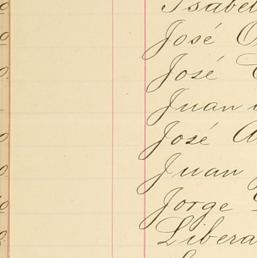 Isabel
José
José
Juan
José A
Juan
Jorge
Libera